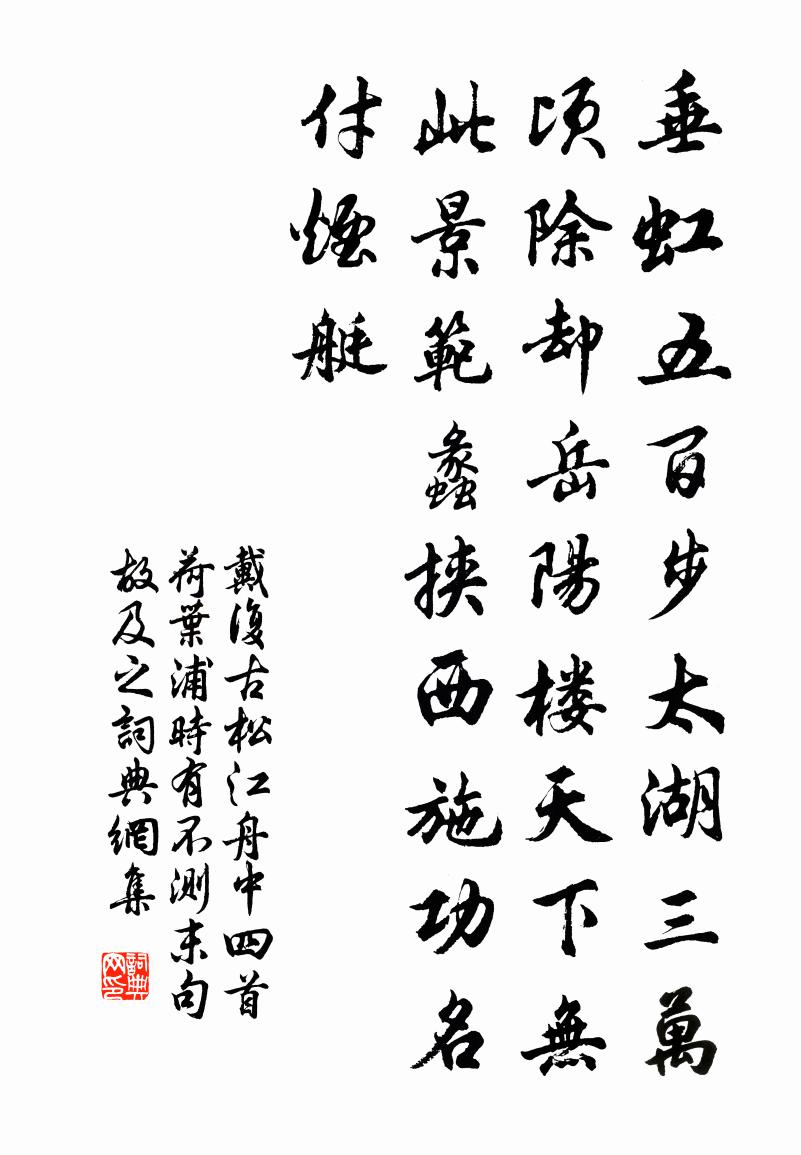 垂虹五百步太湖三萬
頃除却岳陽楼天下無
此景範蠡挾西施功名
付煙艇
戴復古松江舟中四首
荷葉浦時有不測末句
故及之詞典網集
詞典网印